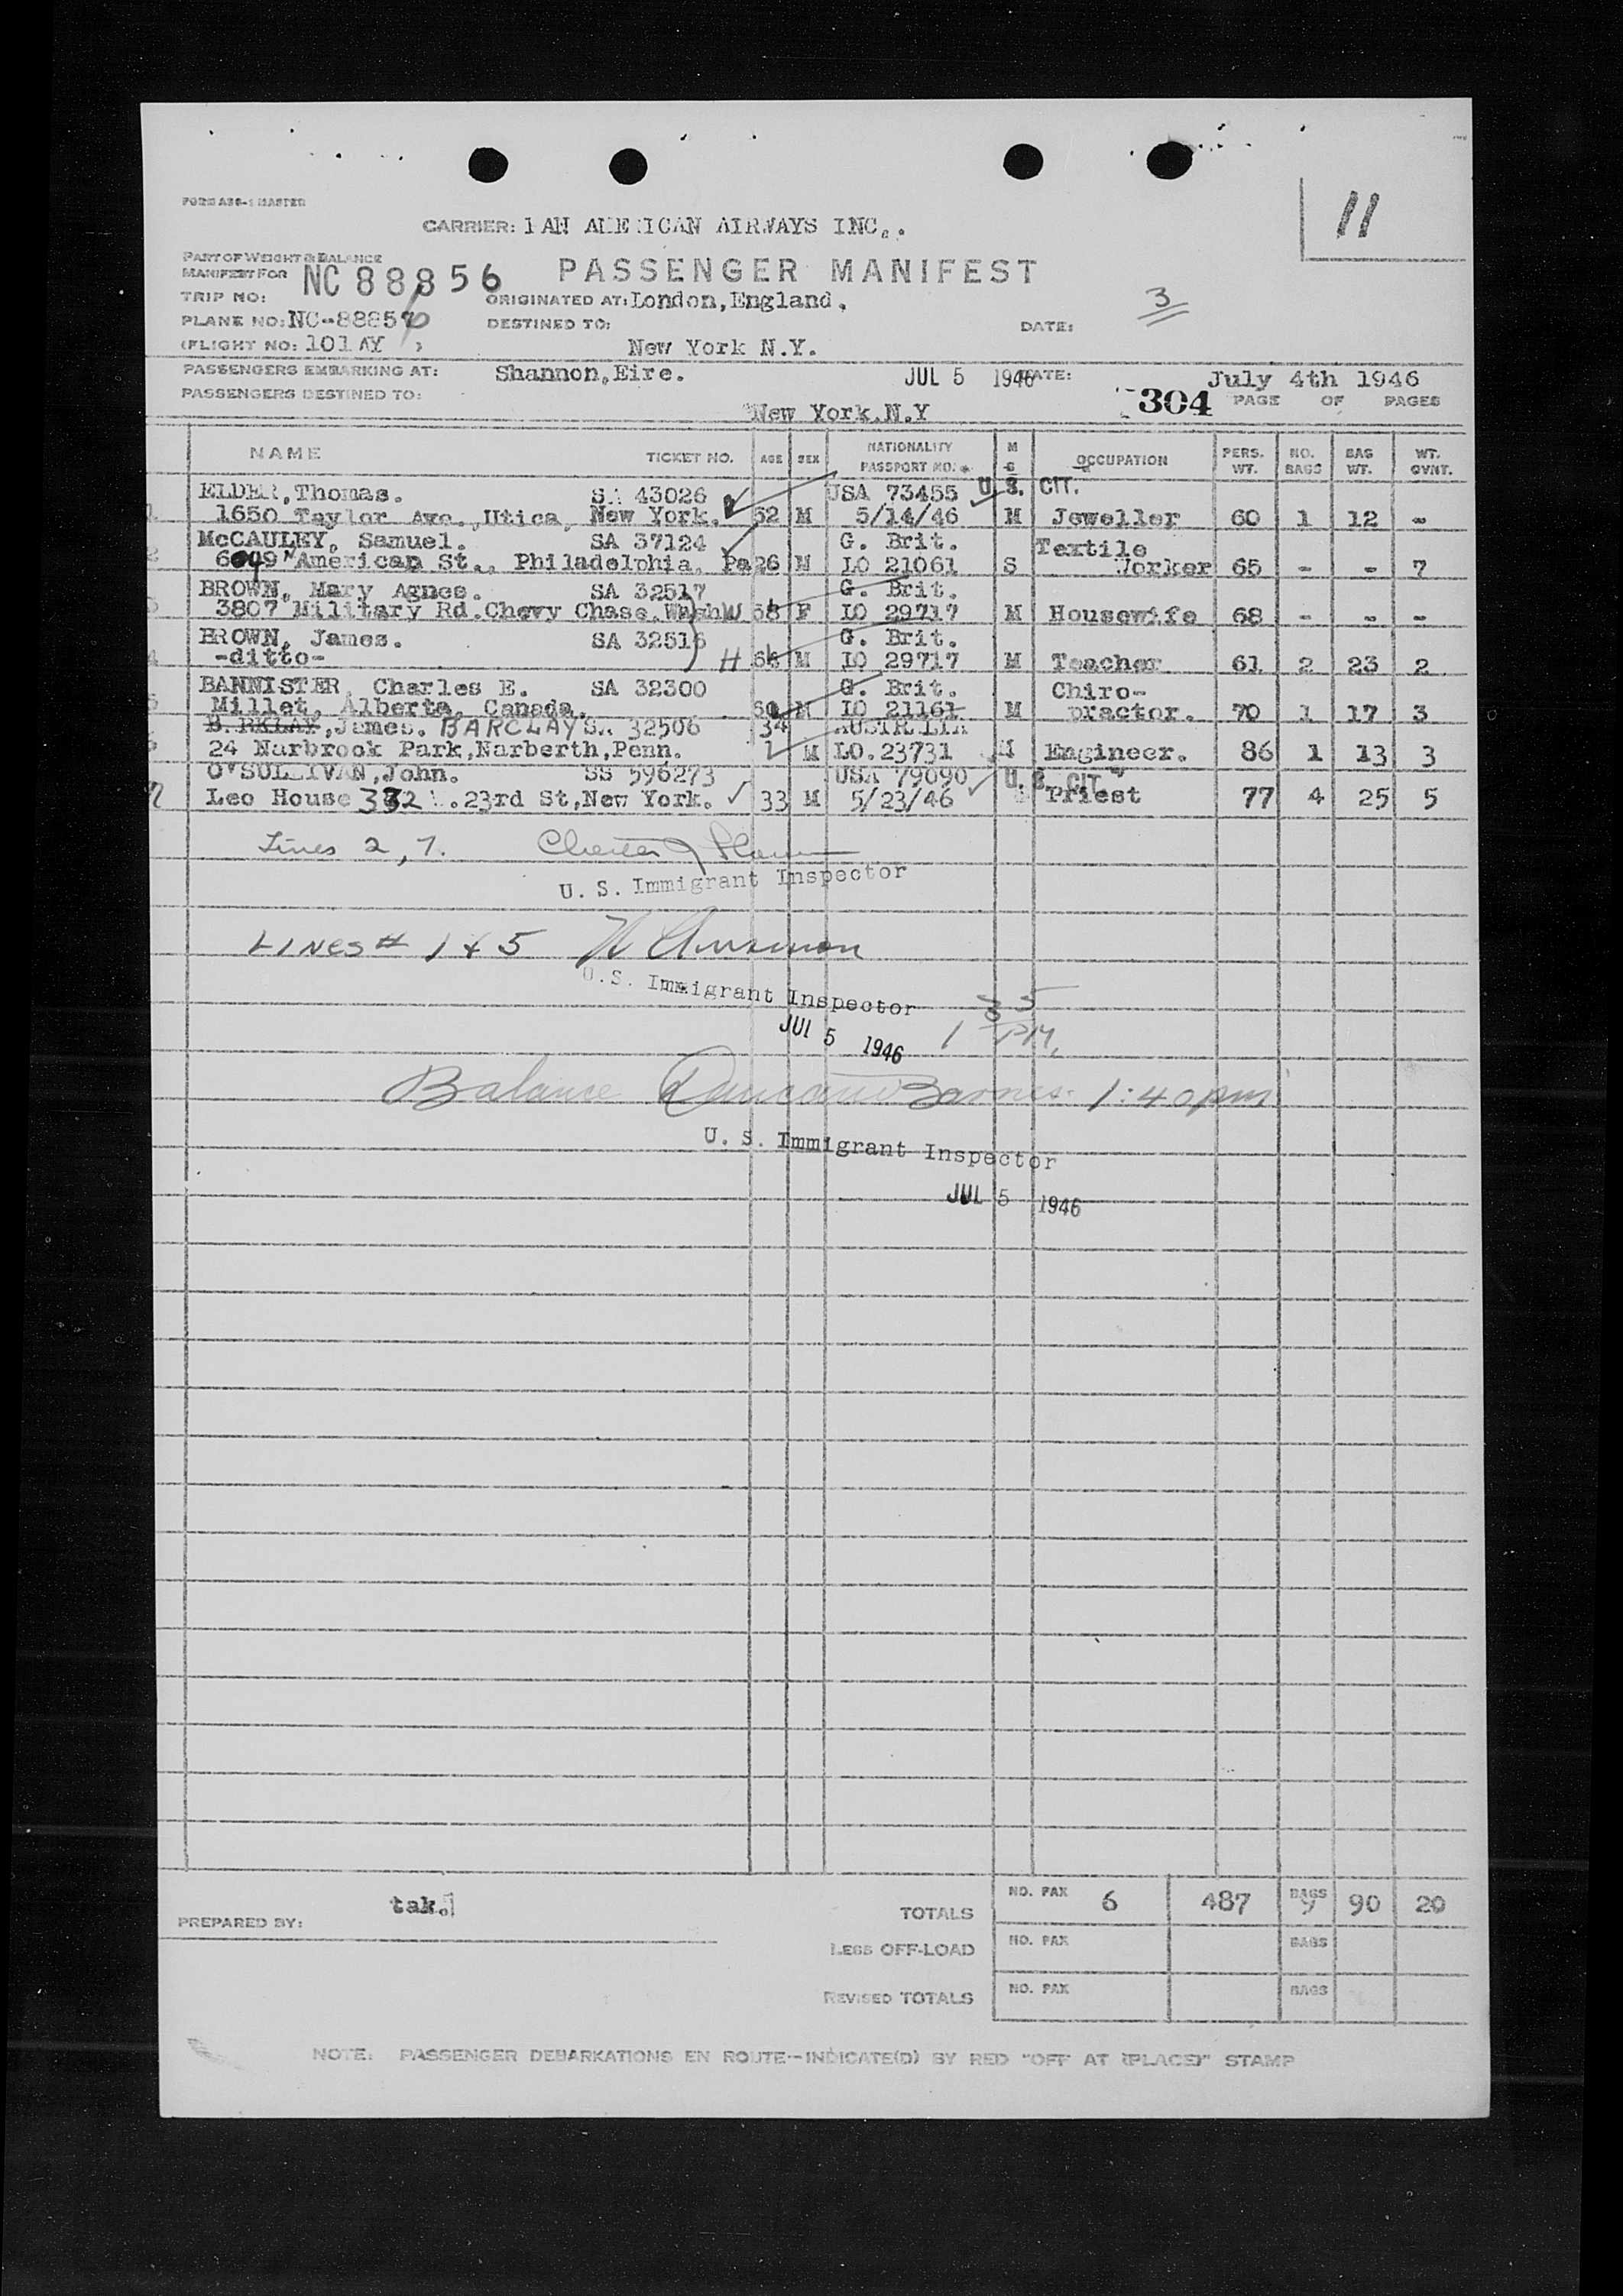 FORM A86-1 MASTER
11
CARRIER: PAN AMERICAN AIRWAYS INC..
PART OF WEIGHT & BALANCE
MANIFEST FOR NC 88856 PASSENGER MANIFEST
TRIP NO: ORIGINATED AT: London, England. 3
PLANE NO: NC-88856 DESTINED TO: DATE:
(FLIGHT NO: 101 AY ) New York N.Y.
PASSENGERS EMBARKING AT: Shannon, Eire. JUL 5 1946 DATE: July 4th 1946
PASSENGERS DESTINED TO: New York.N.Y 304 PAGE OF PAGES
NAME TICKET NO. AGE SEX NATIONALITY PASSPORT NO. M S OCCUPATION PERS. WT. NO. BAGS BAG WT. WT. OVNT.
ELDER, Thomas. SA 43026 USA 73455 U.S. CIT.
1 1650 Taylor Ave., Utica, New York. 52 M 5/14/46 M Jeweller 60 1 12 -
McCAULEY, Samuel. SA 37124 G. Brit. Textile
2 6049 N American St., Philadelphia, Pa 26 M LO 21061 S Worker 65 - - 7
BROWN, Mary Agnes. SA 32517 G. Brit.
3 3807 Military Rd.Chevy Chase.Wash W 58 F LO 29717 M Housewife 68 - - -
BROWN, James. SA 32516 G. Brit.
4 -ditto- H 66 M LO 29717 M Teacher 61 2 23 2
BANNISTER, Charles E. SA 32300 G. Brit. Chiro-
5 Millet, Alberta, Canada. M LO 21161 M practor. 70 1 17 3
BARKLAY, James. BARCLAY SA 32506 34 AUSTRALIA
6 24 Narbrook Park, Narberth, Penn. M LO.23731 M Engineer. 86 1 13 3
O'SULLIVAN, John. SS 596273 USA 79090 U. S. CIT
7 Leo House 332 W.23rd St, New York. 33 M 5/23/46 Priest 77 4 25 5
Lines 2, 7.
U. S. Immigrant Inspector
LINES # 1 & 5
U.S. Immigrant Inspector
JUL 5 1946 1 35 PM
Balance Duncan Barnes 1:40 pm
U. S. Immigrant Inspector
JUL 5 1946
PREPARED BY: tak. TOTALS NO. PAX 6 487 BAGS 9 90 20
LESS OFF-LOAD NO. PAX BAGS
REVISED TOTALS NO. PAX BAGS
NOTE: PASSENGER DEBARKATIONS EN ROUTE--INDICATE(D) BY RED "OFF AT (PLACE)" STAMP